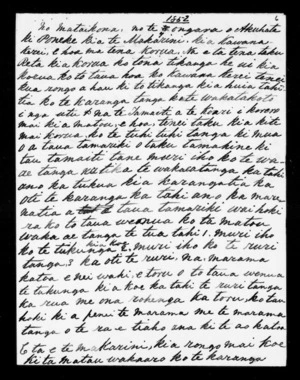 1552
No mataikona, no te Rongara o Akuhata
ki Poneke ki a te Makarini, ki a kawana
kerei, e hoa ma tena korua, Ne a ta tera taku
Reta ki a korua ko tona tikanga he ui ki a
korua ko to taua hoa ko kawana kerei tenei
kua rongo ahau ki to tikanga ki a huia tahi
tia ko te karanga tanga kate wakatakoto
i nga ruri
mai ki a matou, e koro terei taku, ki a kite
mai korua, ko te tuhi tuhi tanga ki mua
o a taua tamariki o taku tamahine ki
tau tamaiti tane muri iho ko te wa
ae tanga
ano ka tukua ki a karangatia ka
oti te karanga ka tahi ano ka mare
natia a taua tamariki wai hoki
ra ko to taua wenua ko te matou
waka ae tanga te tua tahi 1. muri iho
ko te tukunga kia koe, muri iho ko te ruri
tanga. 1 ka oti te ruri, na, marama
katoa e nei wahi. e toru o to taua wenua
te tukunga ki a koe ka tahi te ruri tanga
ka rua me ona rohenga ka toru, ko tau
hoki ki a penei te marama me te marama
tanga o te ra e tiaho ana ki te ao katoa
E ta e te makarini, ki a rongo mai koe
ki ta matau wakaaro ko te karanga